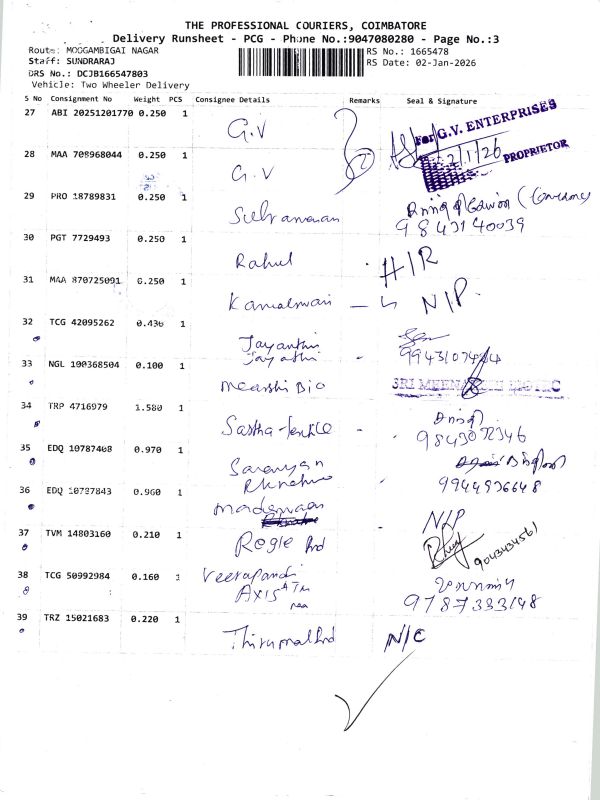 THE PROFESSIONAL COURIERS, COIMBATORE
Delivery Runsheet - PCG - Phone No.:9047080280 - Page No.:3
Route: MOOGAMBIGAI NAGAR
RS No.: 1665478
Staff: SUNDRARAJ
RS Date: 02-Jan-2026
DRS No.: DCJB166547803
Vehicle: Two Wheeler Delivery
S No Consignment No Weight PCS Consignee Details Remarks Seal & Signature
27 ABI 20251201770 0.250 1 G.V For G.V. ENTERPRISES
2/1/26 PROPRIETOR
28 MAA 708968044 0.250 1 G.V
29 PRO 18789831 0.250 1
9843140039
30 PGT 7729493 0.250 1 Rahul H/R
31 MAA 870725091 0.250 1 N/P.
32 TCG 42095262 0.430 1 Jayanthi
33 NGL 100368504 0.100 1 Mearshi Bio
34 TRP 4716979 1.580 1
9843072346
35 EDQ 10787408 0.970 1 Saravyan
9944936648
36 EDQ 10787843 0.960 1
37 TVM 14803160 0.210 1 Regie Prd N/P
9043434561
38 TCG 50992984 0.160 1 Veerapandi
Axis ATM
9787333148
39 TRZ 15021683 0.220 1 Thirumal Prd N/C